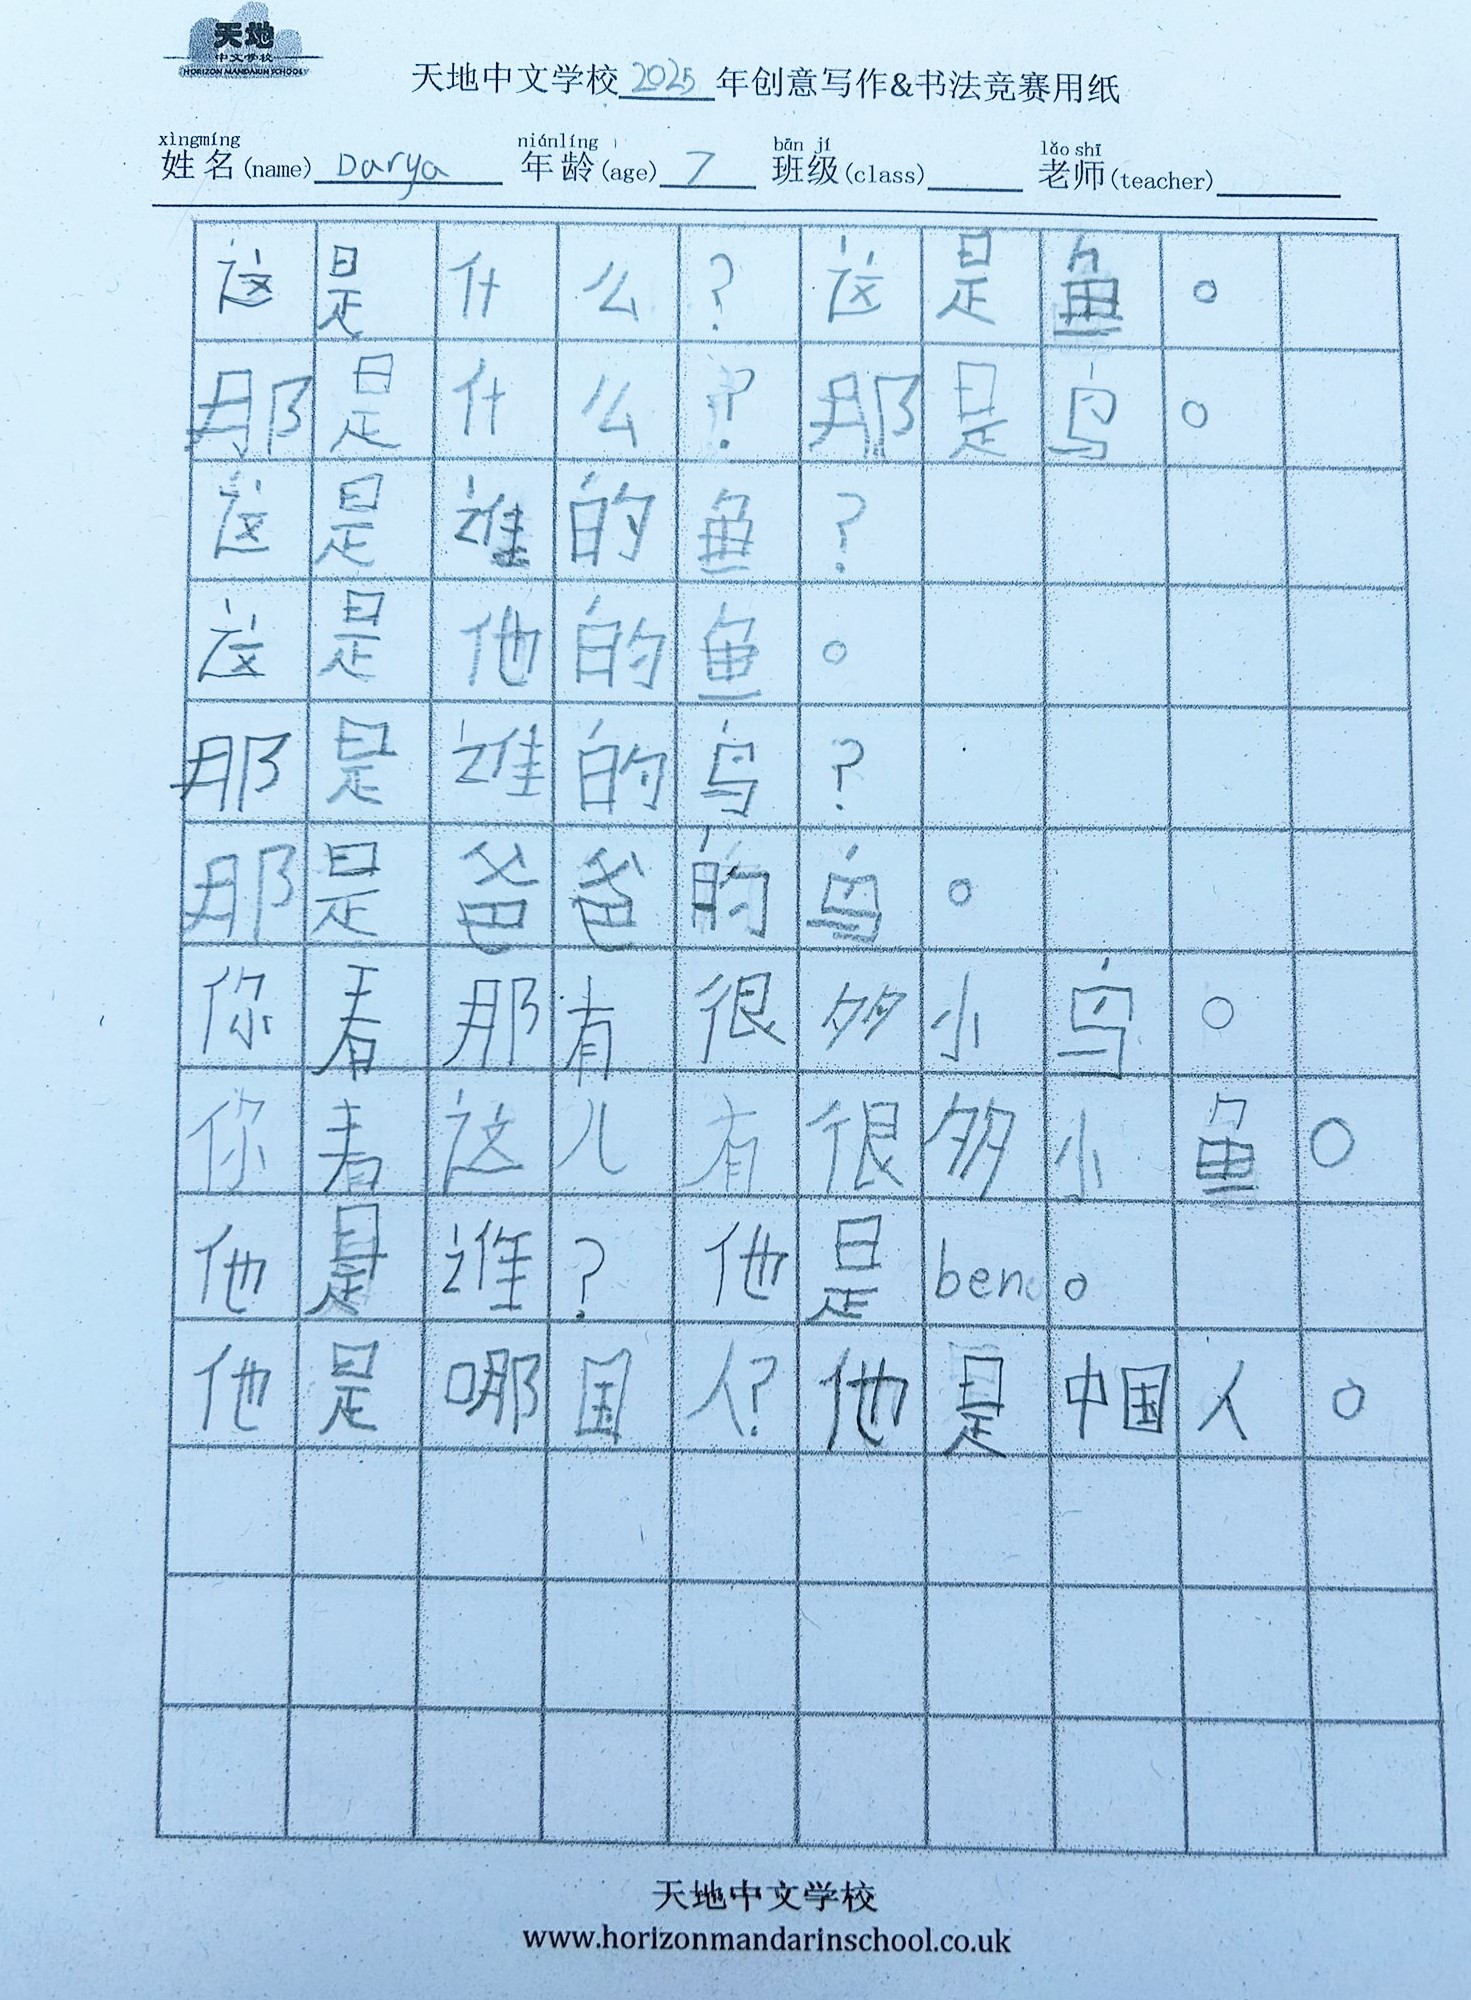 天地
中文学校
HORIZON MANDARIN SCHOOL
天地中文学校 2025 年创意写作&书法竞赛用纸
xìngmíng niánlíng bān jí lǎo shī
姓名(name) Darya 年龄(age) 7 班级(class) 老师(teacher)
这是什么?这是鱼。
那是什么?那是鸟。
这是谁的鱼?
这是他的鱼。
那是谁的鸟?
那是爸爸的鸟。
你看那有很多小鸟。
你看这儿有很多小鱼。
他是谁?他是ben。
他是哪国人?他是中国人。
天地中文学校
www.horizonmandarinschool.co.uk